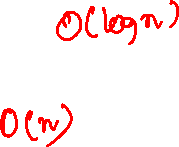 O(logn)
O(n)